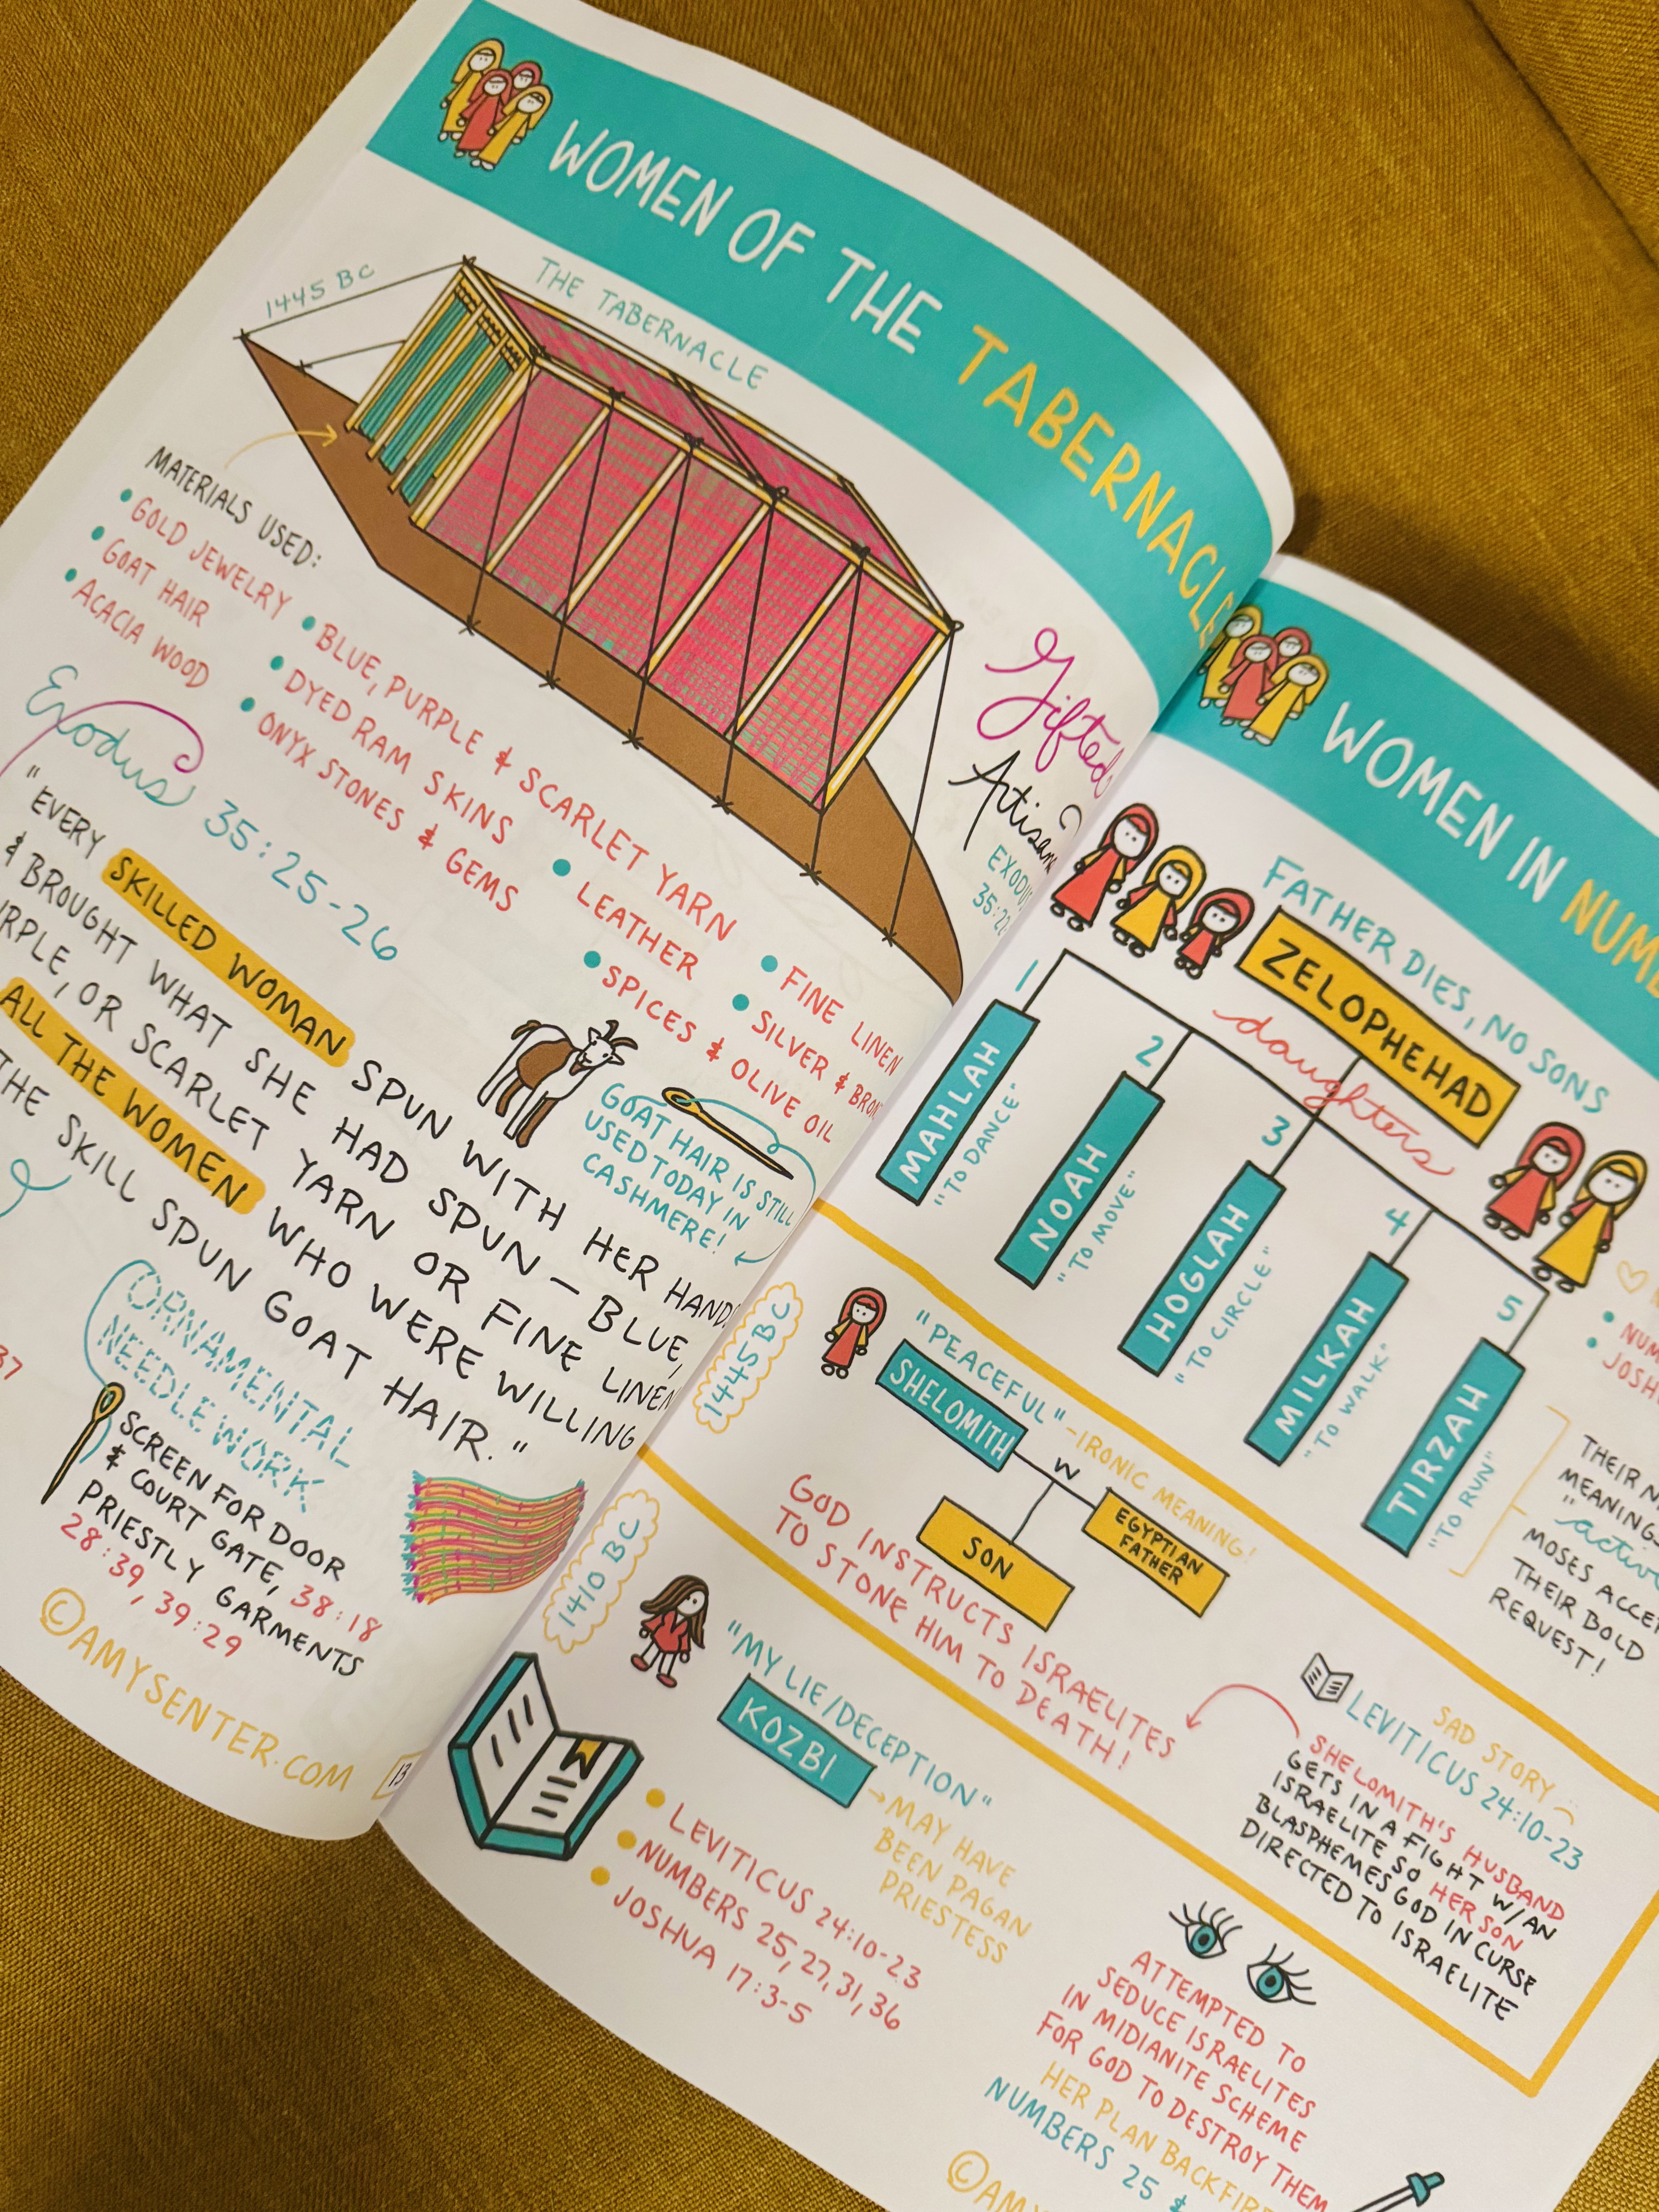 WOMEN OF THE TABERNACLE
THE TABERNACLE
1445 BC
MATERIALS USED:
GOLD JEWELRY
GOAT HAIR
ACACIA WOOD
BLUE, PURPLE & SCARLET YARN
DYED RAM SKINS
ONYX STONES & GEMS
LEATHER
SPICES & OLIVE OIL
FINE LINEN
SILVER &
Gifted
Artisans
EXODUS
Exodus 35:25-26
"EVERY SKILLED WOMAN SPUN WITH HER HANDS
& BROUGHT WHAT SHE HAD SPUN – BLUE,
OR SCARLET YARN OR FINE LINEN
ALL THE WOMEN WHO WERE WILLING
THE SKILL SPUN GOAT HAIR."
GOAT HAIR IS STILL
USED TODAY IN
CASHMERE!
37
ORNAMENTAL
NEEDLEWORK
SCREEN FOR DOOR
& COURT GATE, 38:18
PRIESTLY GARMENTS
28:39, 39:29
©AMYSENTER.COM
13
WOMEN IN
FATHER DIES, NO SONS
ZELOPHEHAD
daughters
1
MAHLAH
"TO DANCE"
2
NOAH
"TO MOVE"
3
HOGLAH
"TO CIRCLE"
4
MILKAH
"TO WALK"
5
TIRZAH
"TO RUN"
THEIR
MEANINGS
"active
MOSES
THEIR BOLD
REQUEST!
1445 BC
"PEACEFUL" – IRONIC MEANING!
SHELOMITH
W
EGYPTIAN
FATHER
SON
GOD INSTRUCTS ISRAELITES
TO STONE HIM TO DEATH!
SAD STORY
LEVITICUS 24:10-23
SHELOMITH'S HUSBAND
GETS IN A FIGHT W/AN
ISRAELITE SO HER SON
BLASPHEMES GOD IN CURSE
DIRECTED TO ISRAELITE
1410 BC
"MY LIE/DECEPTION"
KOZBI
MAY HAVE
BEEN PAGAN
PRIESTESS
LEVITICUS 24:10-23
NUMBERS 25,27,31,36
JOSHUA 17:3-5
ATTEMPTED TO
SEDUCE ISRAELITES
IN MIDIANITE SCHEME
FOR GOD TO DESTROY THEM
HER PLAN
NUMBERS 25 &